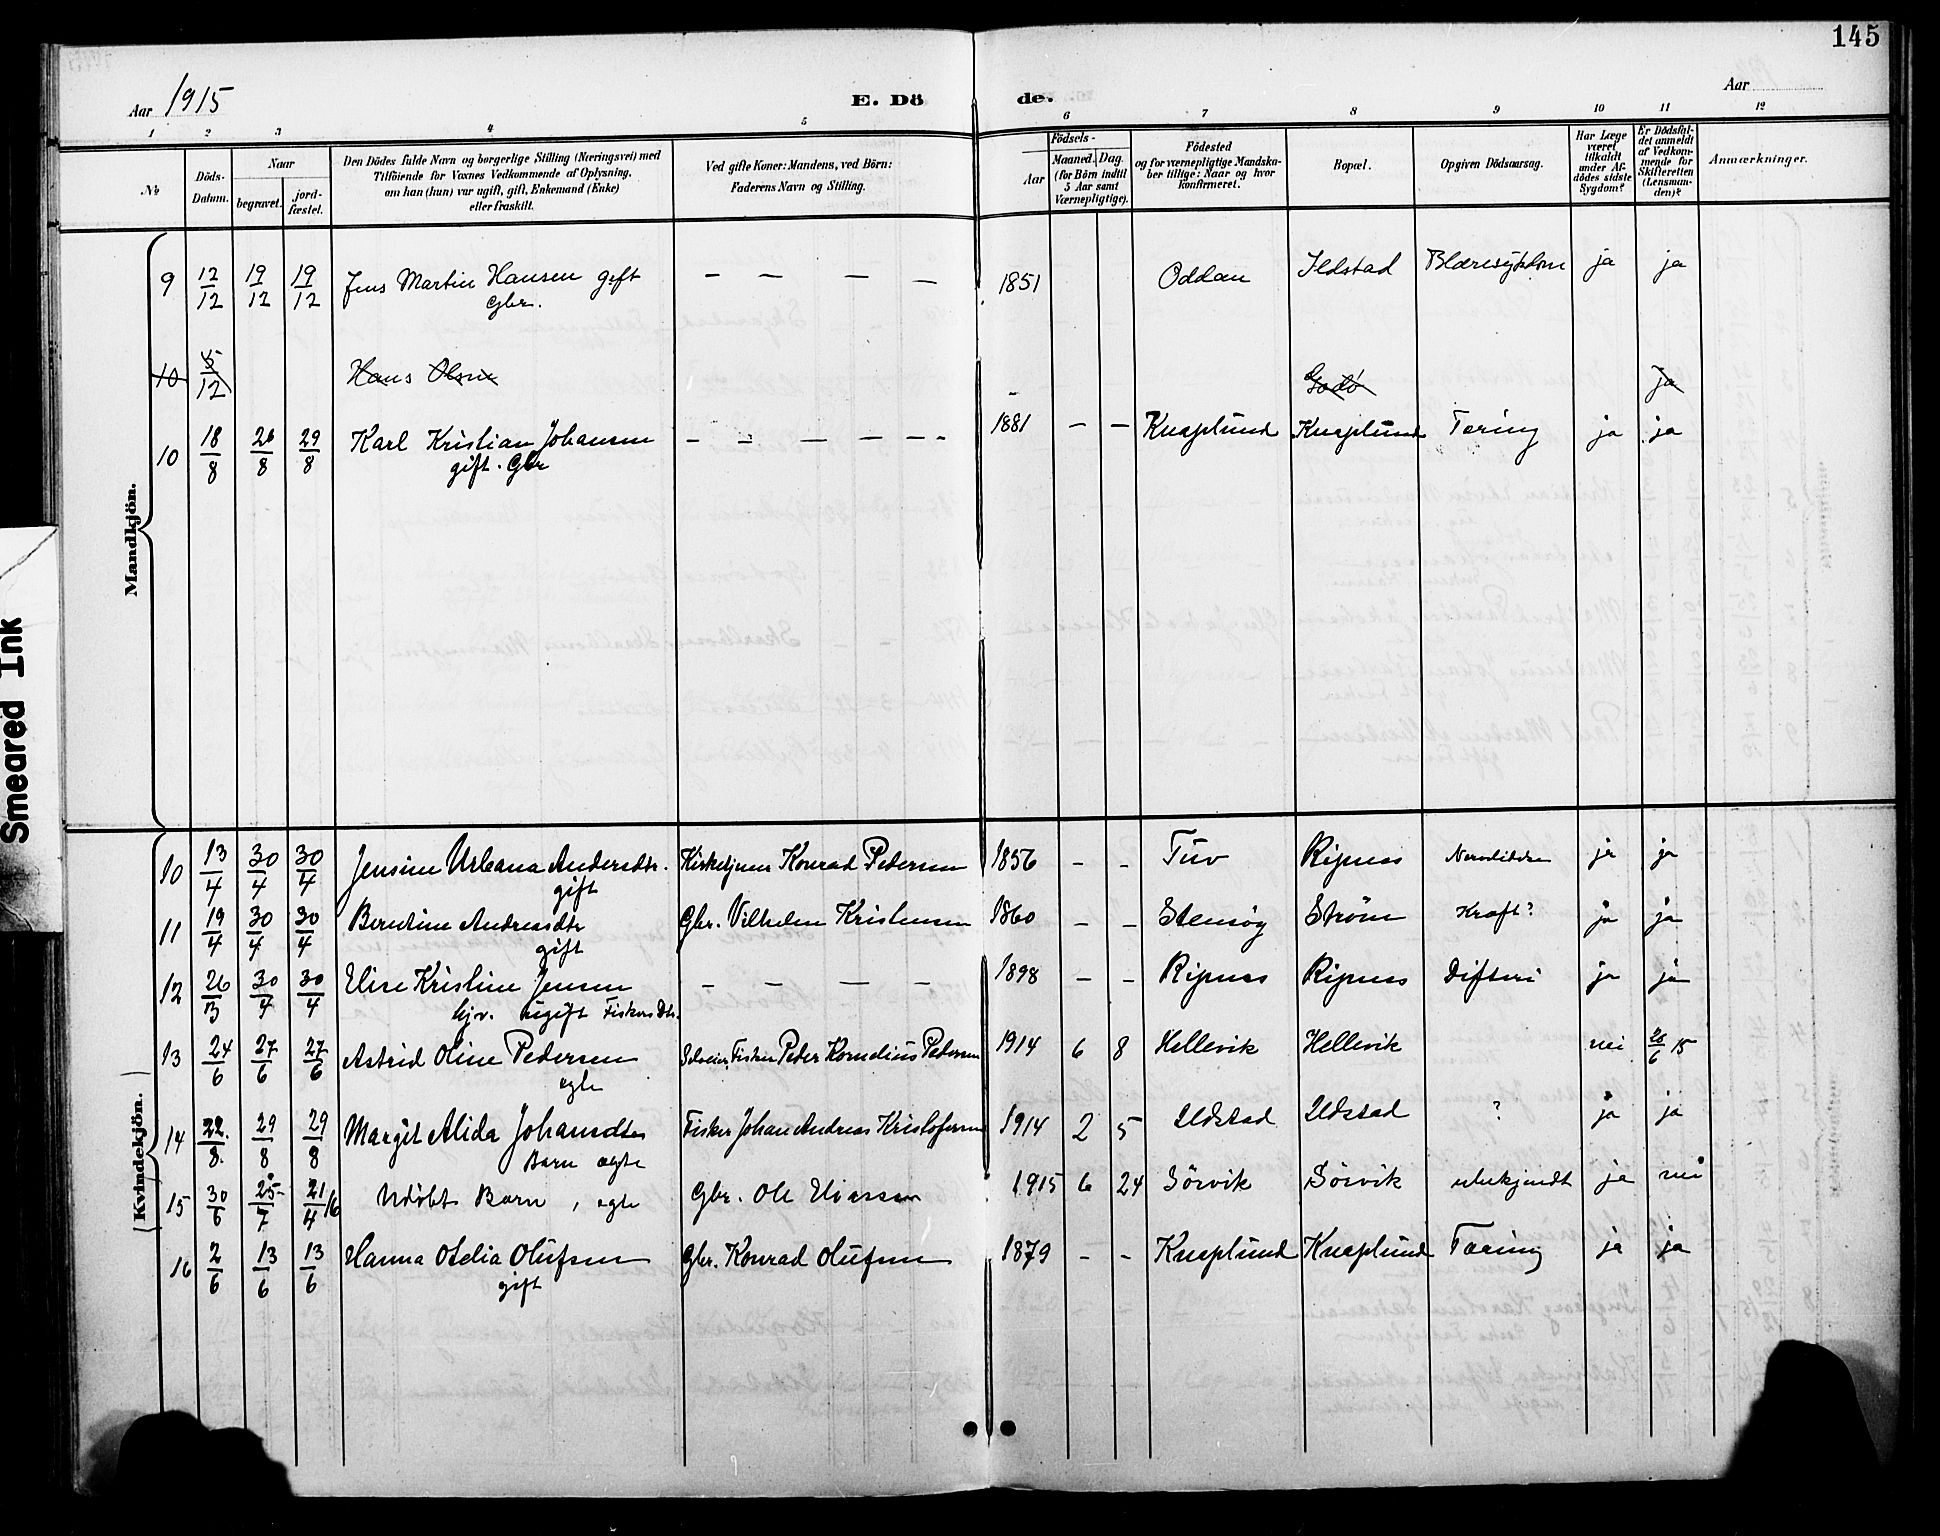 145
Aar 1915
E. Dö de.
Aar
1 2 3 4 5 6 7 8 9 10 11 12
No
Döds-Datum.
Naar
begravet.
jord-fæstet.
Den Dödes fulde Navn og borgerlige Stilling (Næringsvei) med
Tilföiende for Voxnes Vedkommende af Oplysning,
om han (hun) var ugift, gift, Enkemand (Enke)
eller fraskilt.
Ved gifte Koner: Mandens, ved Börn:
Faderens Navn og Stilling.
Födsels-
Aar
Maaned. Dag.
(for Börn indtil
5 Aar samt
Værnepligtige).
Födested
og for værnepligtige Mandska-
ber tillige: Naar og hvor
konfirmeret.
Bopæl.
Opgiven Dödsaarsag.
Har Læge
været
tilkaldt
under Af-
dödes sidste
Sygdom?
Er Dödsfal-
det anmeldt
af Vedkom-
mende for
Skifteretten
(Lensman-
den)?
Anmærkninger.
Mandkjön.
9 12/12 19/12 19/12 Jens Martin Hansen gift — — — — 1851 Oddan Ildstad Blæresykdom ja ja
Gbr.
10 5/12 Hans Olsen Godø ja
10 18/8 26/8 29/8 Karl Kristian Johansen — — — — — 1881 — — Knaplund Knaplund Tæring ja ja
gift. Gbr
Kvindekjön.
10 13/4 30/4 30/4 Jensine Urbana Andersdtr. Kirketjener Konrad Pedersen 1856 — — Tuv Ripnes ja ja
gift
11 19/4 30/4 30/4 Berntine Andreasdtr Gbr. Vilhelm Kristensen 1860 — — Stensøy Strøm Kræft? ja ja
gift
12 26/3 30/4 30/4 Elise Kristine Jensen — — — — 1898 — — Ripnes Ripnes Difteri ja ja
hjv. ugift Fiskersdtr.
13 24/6 27/6 27/6 Astrid Oline Pedersen Selveier, Fisker Peder Kornelius Pedersen 1914 6 8 Hellevik Hellevik nei 28/6 15
ægte
14 22/8 29/8 29/8 Margit Alida Johansdtr Fisker Johan Andreas Kristofersen 1914 2 5 Ildstad Ildstad ? ja ja
Barn ægte
15 30/6 25/7 21/4 16 Udøbt Barn, ægte Gbr. Ole Eliassen 1915 6 24 Sörvik Sörvik ubekjendt ja nei
16 2/6 13/6 13/6 Hanna Otelia Olufsen Gbr. Konrad Olufsen 1879 — — Knaplund Knaplund Tæring ja ja
gift
Smeared Ink